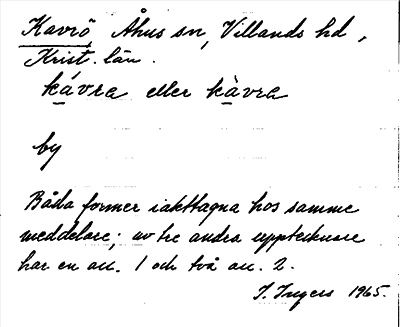 Kavrö Åhus sn, Villands hd,
Krist. län.
kávra eller kàvra
by
Båda former iakttagna hos samme
meddelare; av tre andra upptecknare
har en acc. 1 och två acc. 2.
I. Ingers 1965.